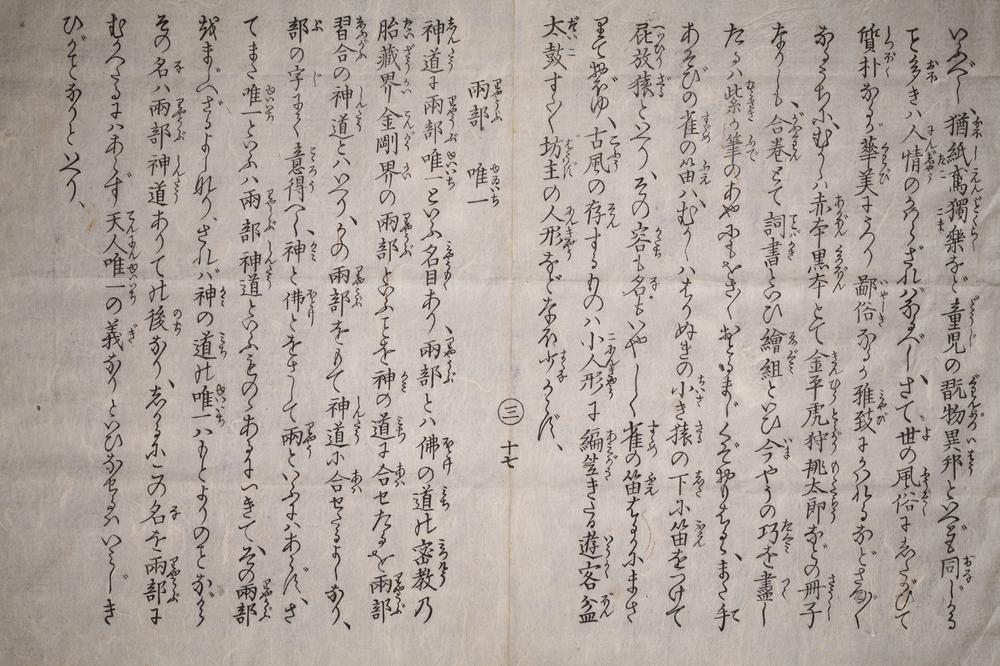 いふべし、猶紙鳶獨樂など童児の翫物異邦といへども同じかる
こと多きハ人情のかはらざれバなるべし、さて世の風俗にしたがひて
質朴なるが華美にうつり鄙俗なるが雅致にかはれるなどさるが多く
なるうち小むかしハ赤本黒本とて金平虎狩桃太郎などの冊子
なりしも、合巻とて詞書といひ繪組といひ今やうの巧を盡し
たるハ紫の筆のあやにもをさ〱おとるまじくぞおもはるゝ、また手
あそびの雀の笛ハむかしハはりぬきの小き猿の下に笛をつけて
屁放猿といへり、その容も名もいやしく雀の笛はるかにまさ
りておぼゆ、古風の存するものハ小人形に編笠きたる遊客盆
太鼓すゝく坊主の人形などなほ少からず、
三 十七
兩部 唯一
神道に兩部唯一といふ名目あり、兩部とハ佛の道の密教乃
胎藏界金剛界の兩部といふことを神の道に合せたるを兩部
習合の神道とハいへり、かの兩部をもて神道に合せたるよしなり、
部の字よく意得べし、神と佛とをさして兩といふにハあらず、さ
てまた唯一といふハ兩部神道といふものゝあるにつきて、その兩部
をまじへざるよしなり、されバ神の道の唯一ハもとよりのことながら
その名ハ兩部神道ありての後なり、しかるにこの名を兩部に
むかへたるにハあらず天人唯一の義なりといひなせるハいみじき
ひがことなりといへり、